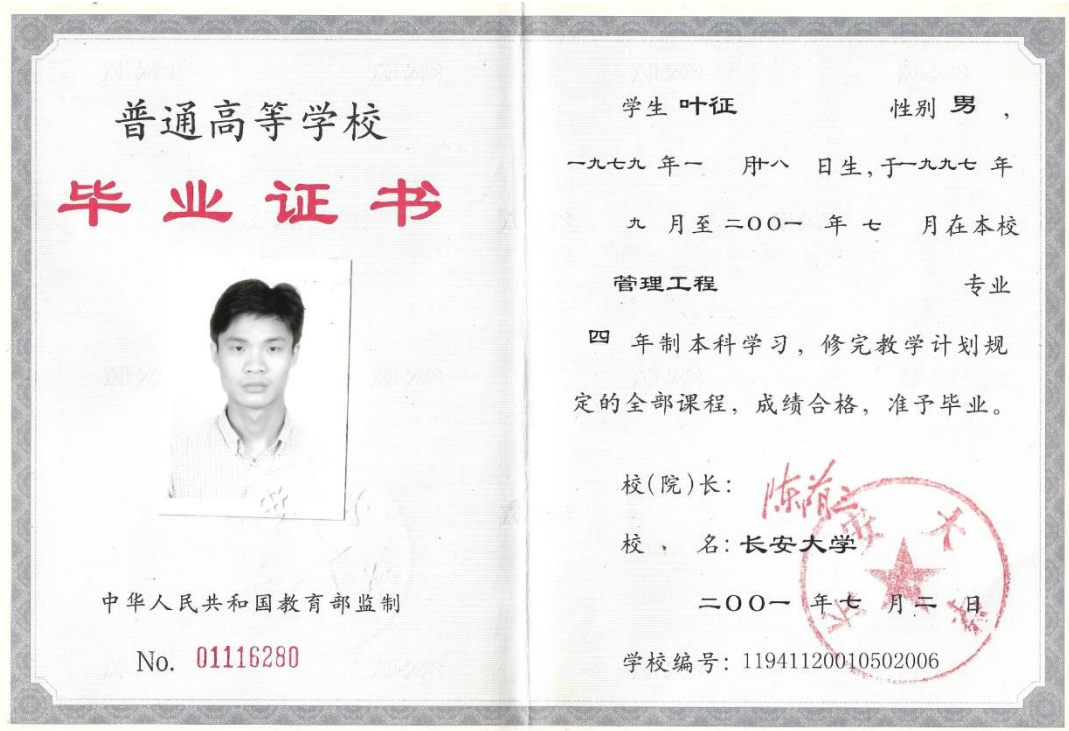 普通高等学校
毕业证书
中华人民共和国教育部监制
No. 01116280
学生 叶征 性别 男 ,
一九七九 年 一 月 十八 日生,于 一九九七 年
九 月至 二〇〇一 年 七 月在本校
管理工程 专业
四 年制本科学习,修完教学计划规
定的全部课程,成绩合格,准予毕业。
校(院)长:
校、名: 长安大学
二〇〇一 年 七 月 二 日
学校编号: 11941120010502006